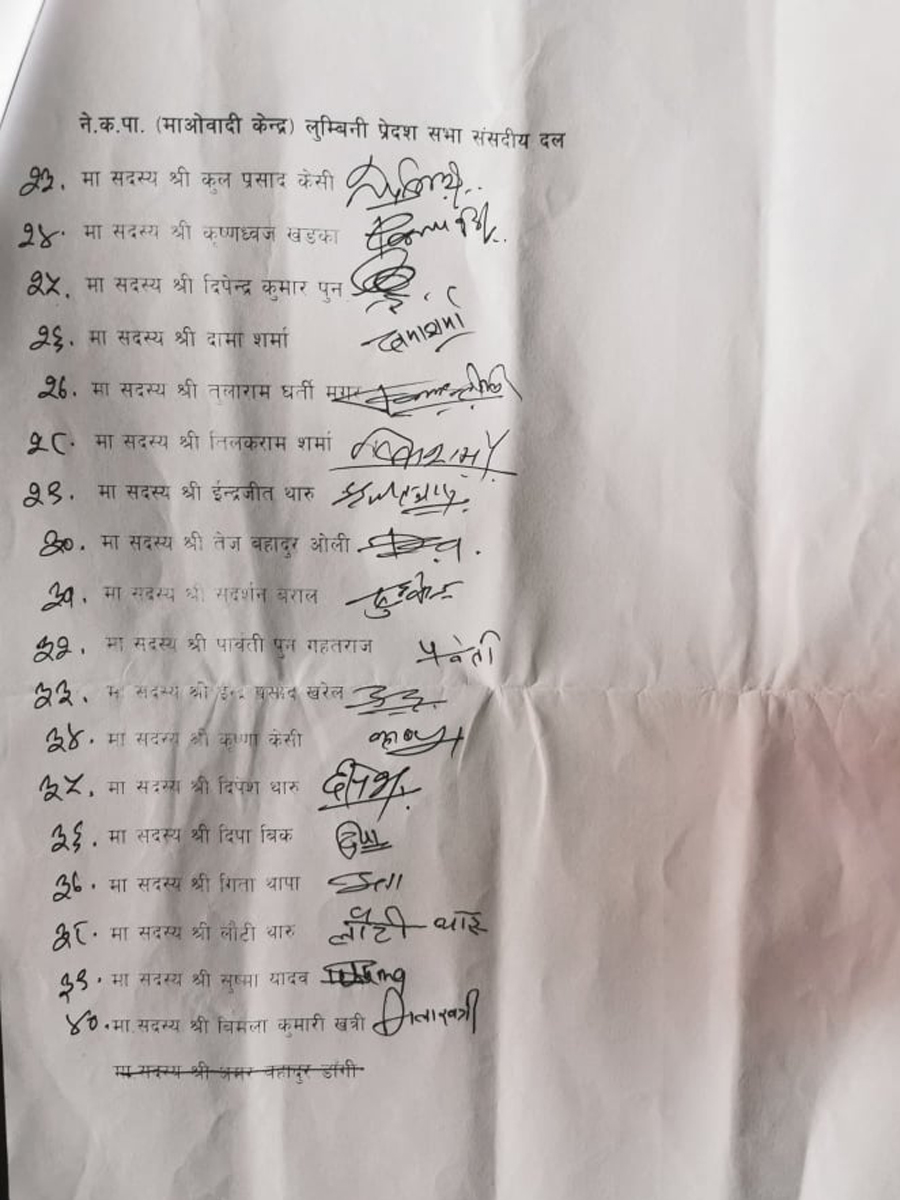 ने.क.पा. (माओवादी केन्द्र) लुम्बिनी प्रेदश सभा संसदीय दल
२३. मा सदस्य श्री कुल प्रसाद केसी
२४. मा सदस्य श्री कृष्णध्वज खडका
२५. मा सदस्य श्री दिपेन्द्र कुमार पुन
२६. मा सदस्य श्री दामा शर्मा
२७. मा सदस्य श्री तुलाराम घर्ती मगर
२८. मा सदस्य श्री तिलकराम शर्मा
२९. मा सदस्य श्री ईन्द्रजीत थारु
३०. मा सदस्य श्री तेज बहादुर ओली
३१. मा सदस्य श्री सदर्शन बराल
३२. मा सदस्य श्री पार्वती पुन गहतराज पर्वती
३३. मा सदस्य श्री ईन्द्र प्रसाद खरेल
३४. मा सदस्य श्री कृष्णा केसी
३५. मा सदस्य श्री दिपेश थारु
३६. मा सदस्य श्री दिपा बिक दिपा
३७. मा सदस्य श्री गिता थापा
३८. मा सदस्य श्री लौटी थारु लौटी थारू
३९. मा सदस्य श्री सुष्मा यादव
४०. मा.सदस्य श्री बिमला कुमारी खत्री
मा सदस्य श्री अमर बहादुर डाँगी